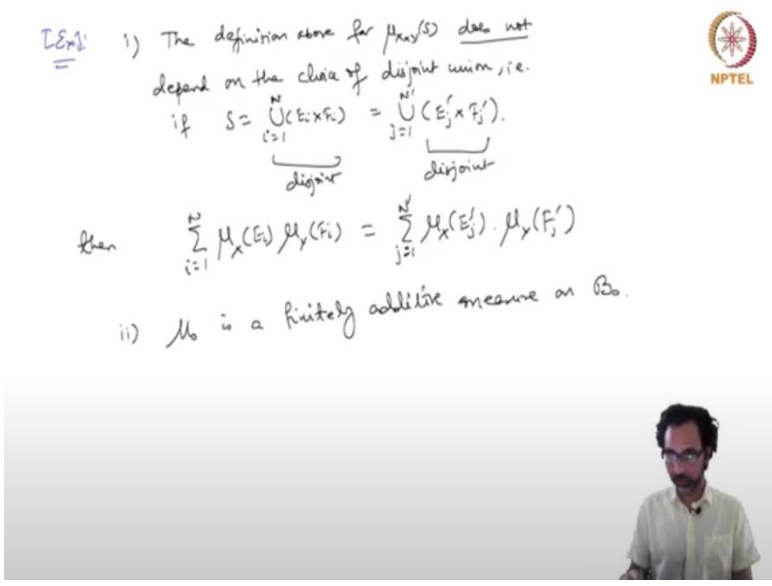 [Ex]: i) The definition above for μ_{X×Y}(S) does not
NPTEL
depend on the choice of disjoint union, i.e.
if S = ⋃_{i=1}^{N} (E_i × F_i) = ⋃_{j=1}^{N'} (E_j' × F_j').
disjoint disjoint
then ∑_{i=1}^{N} μ_X(E_i) μ_Y(F_i) = ∑_{j=1}^{N'} μ_X(E_j') · μ_Y(F_j')
ii) μ_0 is a finitely additive measure on B_0.